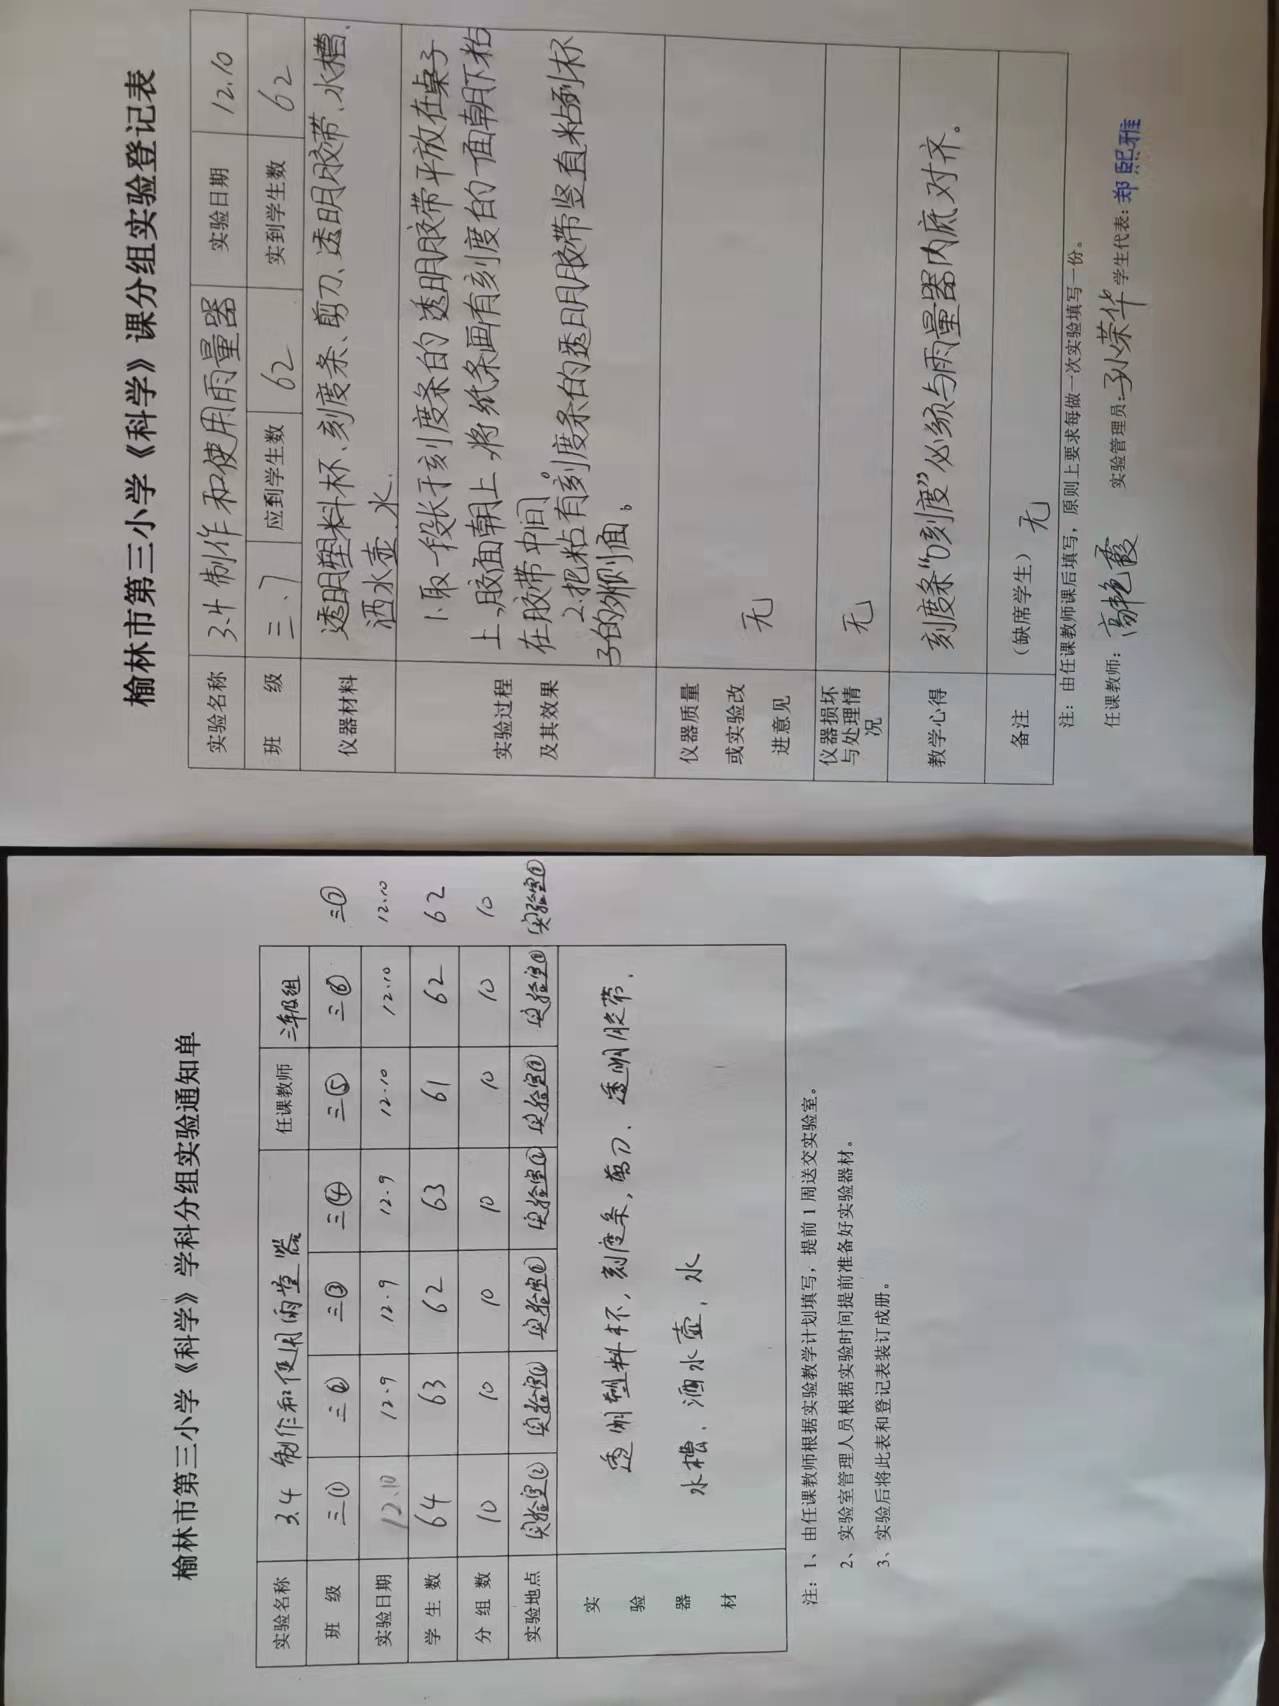 榆林市第三小学《科学》课分组实验登记表
实验名称 3.4 制作和使用雨量器 实验日期 12.10
班 级 三、7 应到学生数 62 实到学生数 62
仪器材料 透明塑料杯、刻度条、剪刀、透明胶带、水槽、
洒水壶、水.
实验过程
及其效果
1.取一段长于刻度条的透明胶带平放在桌子
上,胶面朝上,将纸条画有刻度的一面朝下粘
在胶带中间。
2.把粘有刻度条的透明胶带竖直粘到杯
子的外侧面。
仪器质量
或实验改
进意见
无
仪器损坏
与处理情
况
无
教学心得 刻度条“0刻度”必须与雨量器内底对齐。
备注 （缺席学生） 无
注：由任课教师课后填写，原则上要求每做一次实验填写一份。
任课教师：高艳霞 实验管理员：孙荣华 学生代表：郑熙雅
榆林市第三小学《科学》学科分组实验通知单
实验名称 3.4 制作和使用雨量器 任课教师 三年级组
班 级 三① 三② 三③ 三④ 三⑤ 三⑥ 三⑦
实验日期 12.10 12.9 12.9 12.9 12.10 12.10 12.10
学 生 数 64 63 62 63 61 62 62
分 组 数 10 10 10 10 10 10 10
实验地点 实验室② 实验室 实验室 实验室 实验室 实验室 实验室
实
验
器
材
透明塑料杯,刻度条,剪刀、透明胶带.
水槽.洒水壶.水
注：1、由任课教师根据实验教学计划填写，提前 1 周送交实验室。
2、实验室管理人员根据实验时间提前准备好实验器材。
3、实验后将此表和登记表装订成册。